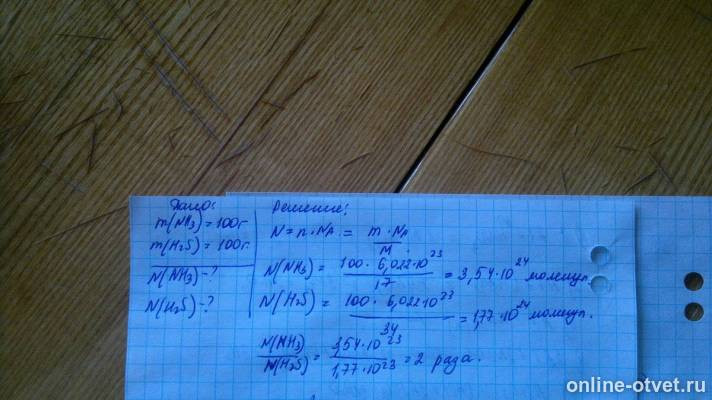 Дано:
m(NH3) = 100г
m(H2S) = 100г.
N(NH3) - ?
N(H2S) - ?
Решение:
N = n · NA = m · NA / M
N(NH3) = 100 · 6,022 · 10^23 / 17 = 3,54 · 10^24 молекул.
N(H2S) = 100 · 6,022 · 10^23 / 34 = 1,77 · 10^24 молекул.
N(NH3) / N(H2S) = 3,54 · 10^23 / 1,77 · 10^23 = 2 раза.
online-otvet.ru